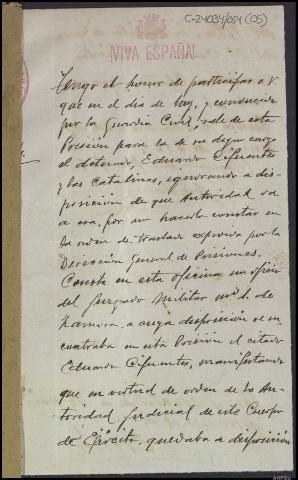 C-24034/054 (05)
¡VIVA ESPAÑA!
Tengo el honor de participar a V
que en el dia de hoy, y conducido
por la Guardia Civil, sale de esta
Prisión para la de su digno cargo
el detenido, Eduardo Cifuentes
y las Catalinas, ignorando a dis-
posición de que Autoridad va
a esa, por no hacerlo constar en
la orden de traslado expedida por la
Dirección General de Prisiones.
Consta en esta oficina un oficio
del Juzgado Militar nº 1. de
Zamora, a cuya disposición se en-
contraba en esta Prisión el citado
Eduardo Cifuentes, manifestando
que en virtud de orden de la Au-
toridad Judicial de este Cuerpo
de Ejército, quedaba a disposición